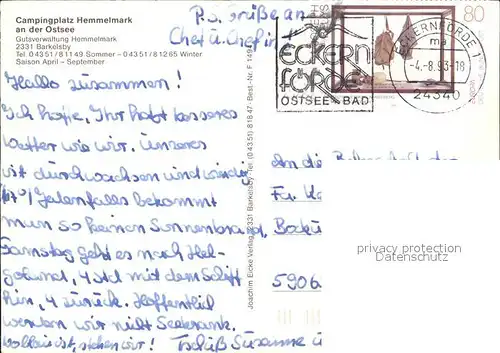 Campingplatz Hemmelmark
an der Ostsee
Gutsverwaltung Hemmelmark
2331 Barkelsby
Tel. 04351/81149 Sommer – 04351/81265 Winter
Saison April – September
P.S. Grüße an
Chef u. Chefin
Hallo zusammen!
Ich hoffe, Ihr habt besseres
Wetter wie wir. Unseres
ist durchwachsen und windig
Jedenfalls bekommt
man so keinen Sonnenbrand,
Samstag geht es nach Hel-
goland, 4 Std mit dem Schiff
hin, 4 zurück. Hoffentlich
werden wir nicht Seekrank.
! Tschüß Susanne u
Joachim Eicke Verlag, 2331 Barkelsby, Tel. (04351) 81847 · Best.-Nr. F
ECKERN
FÖRDE
OSTSEE BAD
80
ECKERNFÖRDE 1
ma
-4.-8.93-18
24340
An die
Bocku
5906
privacy protection
Datenschutz